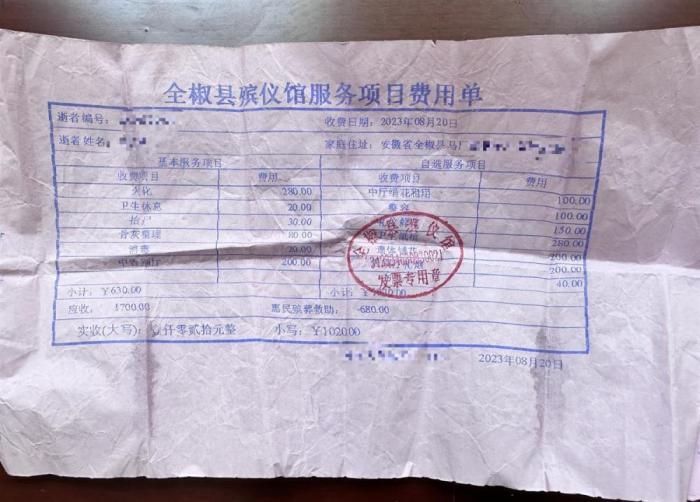 全椒县殡仪馆服务项目费用单
逝者编号： 收费日期：2023年08月20日
逝者姓名： 家庭住址：安徽省全椒县马厂
基本服务项目 自选服务项目
收费项目 费用 收费项目 费用
火化 280.00 中厅绢花租用 100.00
卫生休息 20.00 整容 100.00
抬尸 30.00 150.00
骨灰整理 80.00 280.00
消毒 20.00 遗体铺花 200.00
200.00 200.00
40.00
小计：￥630.00 小计：
应收： 1700.00 惠民殡葬救助： -680.00
实收(大写)：壹仟零贰拾元整 小写：￥1020.00
2023年08月20日
发票专用章